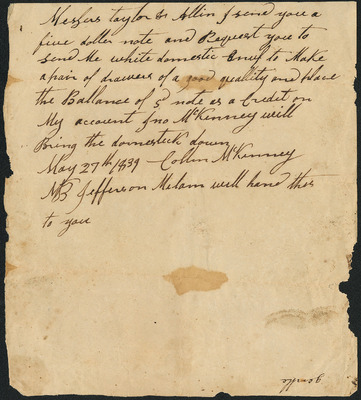 Messers Taylor & Allin I send you a
five doller note and Request you to
send Me white domestic Enuf to Make
a pair of drawers of a good quality and place
the Ballance of sd note as a Credit on
My account Jno McKenney will
Bring the domesteck down
May 27th 1839 Collin McKenney
NB Jefferson Melam will hand this
to you